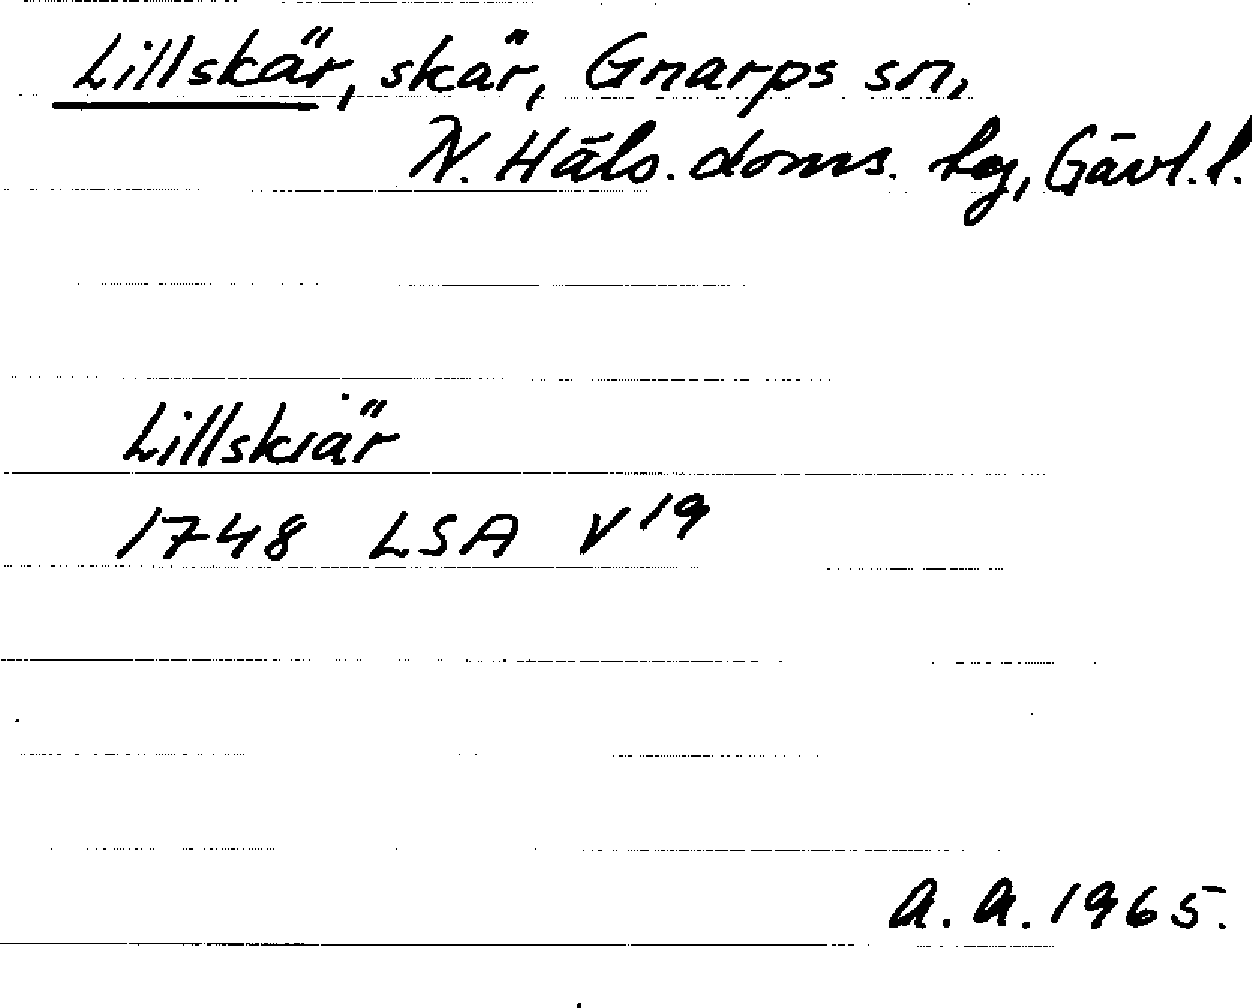 Lillskär, skär, Gnarps sn,
N. Häls. doms. hg, Gävl. l.
Lillskiär
1748 LSA V 19
A. A. 1965.